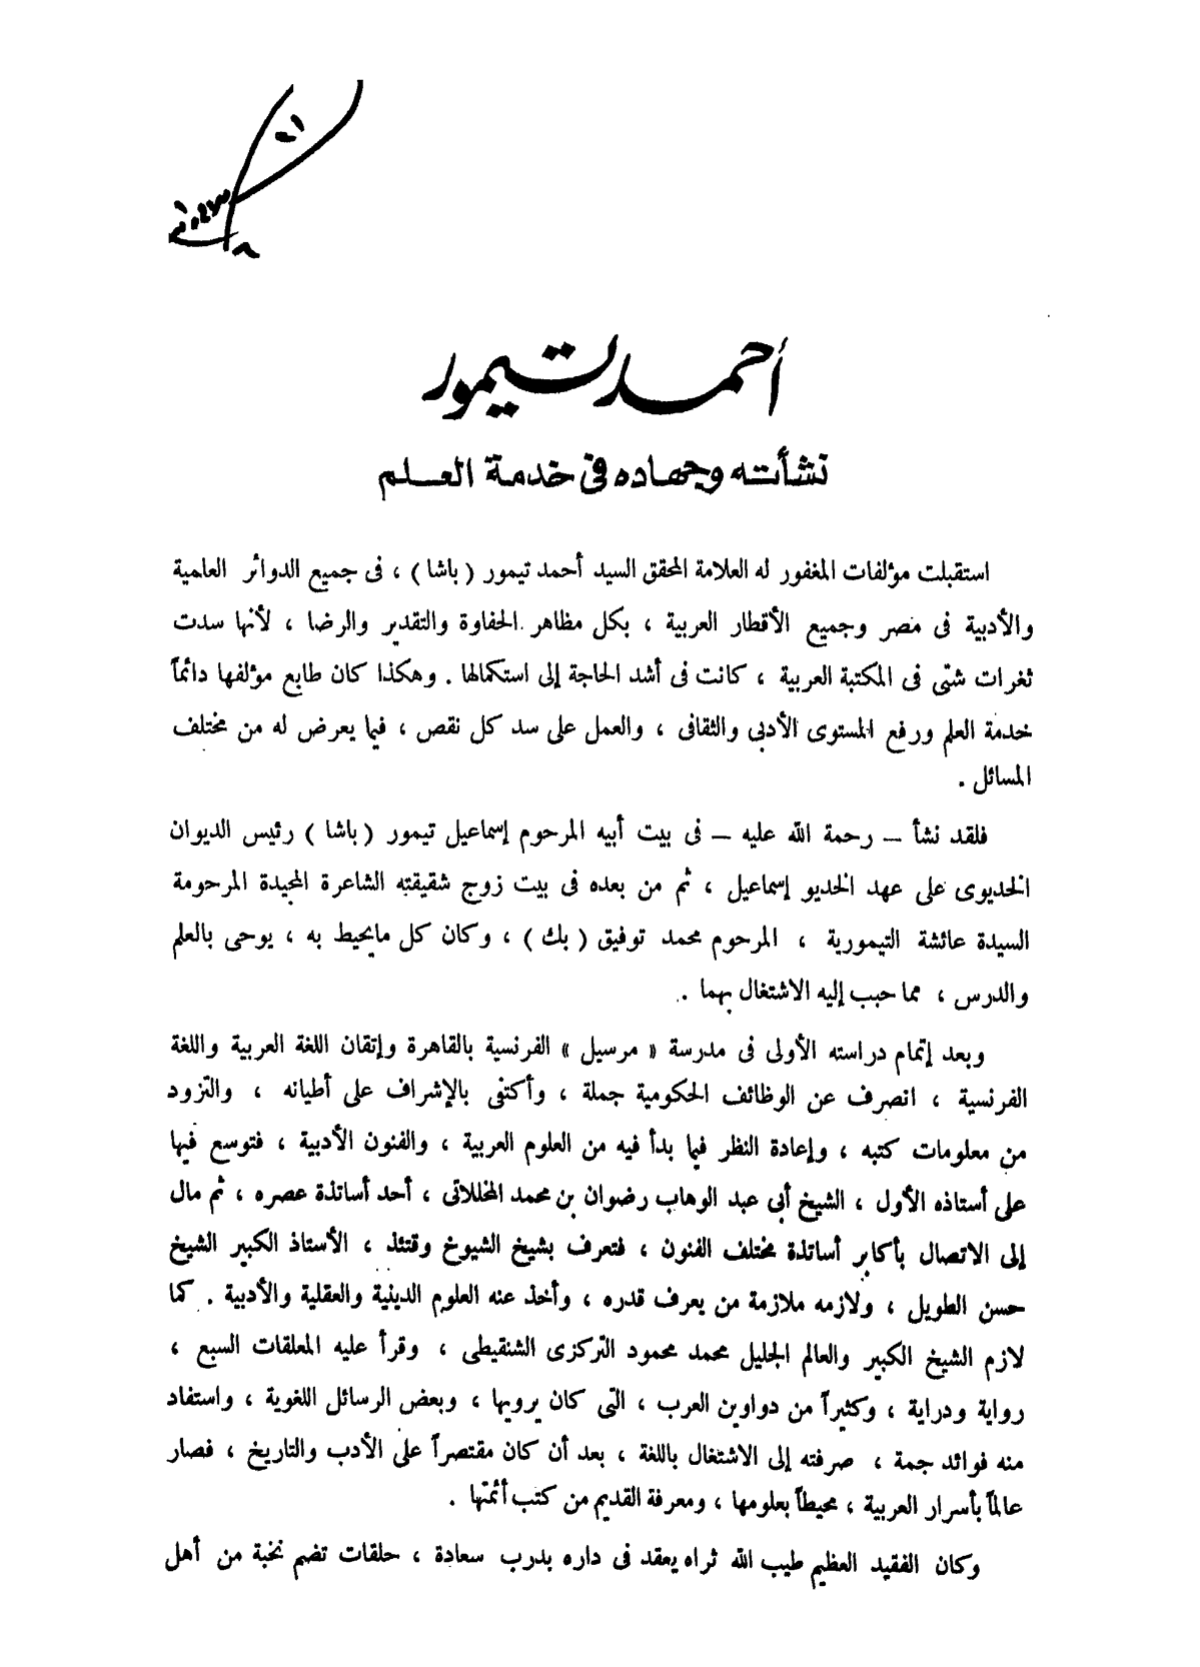 أحمد تيمور
نشأته وجهاده فى خدمة العلم
استقبلت مؤلفات المغفور له العلامة المحقق السيد أحمد تيمور ( باشا ) ، فى جميع الدوائر العلمية
والأدبية فى مصر وجميع الأقطار العربية ، بكل مظاهر الحفاوة والتقدير والرضا ، لأنها سدت
ثغرات شتى فى المكتبة العربية ، كانت فى أشد الحاجة إلى استكمالها . وهكذا كان طابع مؤلفها دائماً
خدمة العلم ورفع المستوى الأدبى والثقافى ، والعمل على سد كل نقص ، فيما يعرض له من مختلف
المسائل .
فلقد نشأ – رحمة الله عليه – فى بيت أبيه المرحوم إسماعيل تيمور ( باشا ) رئيس الديوان
الخديوى على عهد الخديو إسماعيل ، ثم من بعده فى بيت زوج شقيقته الشاعرة المجيدة المرحومة
السيدة عائشة التيمورية ، المرحوم محمد توفيق ( بك ) ، وكان كل مايحيط به ، يوحى بالعلم
والدرس ، مما حبب إليه الاشتغال بهما .
وبعد إتمام دراسته الأولى فى مدرسة « مرسيل » الفرنسية بالقاهرة وإتقان اللغة العربية واللغة
الفرنسية ، انصرف عن الوظائف الحكومية جملة ، وأكتفى بالإشراف على أطيانه ، والتزود
من معلومات كتبه ، وإعادة النظر فيما بدأ فيه من العلوم العربية ، والفنون الأدبية ، فتوسع فيها
على أستاذه الأول ، الشيخ أبى عبد الوهاب رضوان بن محمد المخللاتى ، أحد أساتذة عصره ، ثم مال
إلى الاتصال بأكابر أساتذة مختلف الفنون ، فتعرف بشيخ الشيوخ وقتئذ ، الأستاذ الكبير الشيخ
حسن الطويل ، ولازمه ملازمة من يعرف قدره ، وأخذ عنه العلوم الدينية والعقلية والأدبية . كما
لازم الشيخ الكبير والعالم الجليل محمد محمود التركزى الشنقيطى ، وقرأ عليه المعلقات السبع ،
رواية ودراية ، وكثيراً من دواوين العرب ، التى كان يرويها ، وبعض الرسائل اللغوية ، واستفاد
منه فوائد جمة ، صرفته إلى الاشتغال باللغة ، بعد أن كان مقتصراً على الأدب والتاريخ ، فصار
عالماً بأسرار العربية ، محيطاً بعلومها ، ومعرفة القديم من كتب أئمتها .
وكان الفقيد العظيم طيب الله ثراه يعقد فى داره بدرب سعادة ، حلقات تضم نخبة من أهل